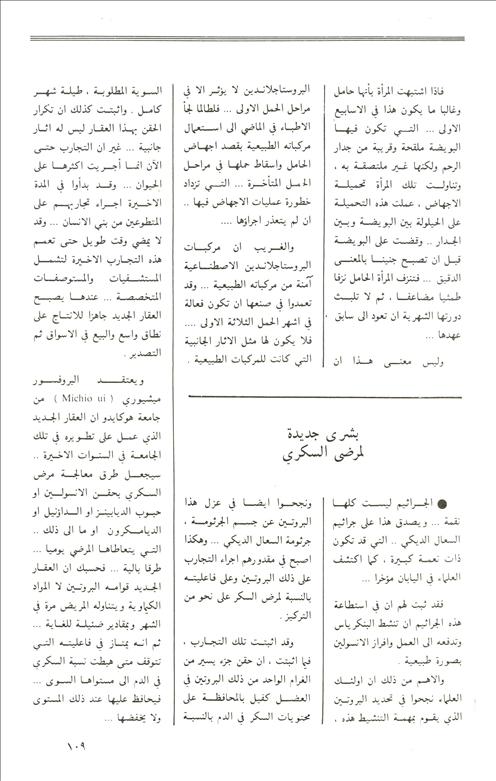 فاذا اشتبهت المرأة بأنها حامل
وغالبا ما يكون هذا في الاسابيع
الاولى ... التي تكون فيها
البويضة ملقحة وقريبة من جدار
الرحم ولكنها غير ملتصقة به ،
وتناولت تلك المرأة تحميلة
الاجهاض ، عملت هذه التحميلة
على الحيلولة بين البويضة وبين
الجدار .. وقضت على البويضة
قبل ان تصبح جنينا بالمعنى
الدقيق ... فتنزف المرأة الحامل نزفا
طمثيا مضاعفا ، ثم لا تلبث
دورتها الشهرية ان تعود الى سابق
عهدها ...
وليس معنى هذا ان
البروستاجلاندين لا يؤثر الا في
مراحل الحمل الاولى ... فلطالما لجأ
الاطباء في الماضي الى استعمال
مركباته الطبيعية بقصد اجهاض
الحامل واسقاط حملها في مراحل
الحمل المتأخرة ... التي تزداد
خطورة عمليات الاجهاض فيها ..
ان لم يتعذر اجراؤها ....
والغريب ان مركبات
البروستاجلاندين الاصطناعية
آمنة من مركباته الطبيعية ... وقد
تعمدوا في صنعها ان تكون فعالة
في اشهر الحمل الثلاثة الاولى ....
فلا يكون لها مثل الاثار الجانبية
التي كانت للمركبات الطبيعية .
بشرى جديدة
لمرضى السكري
● الجراثيم ليست كلها
نقمة ... ويصدق هذا على جراثيم
السعال الديكي .. التي قد تكون
ذات نعمة كبيرة ، كما اكتشف
العلماء في اليابان مؤخرا ...
فقد ثبت لهم ان في استطاعة
هذه الجراثيم ان تنشط البنكرياس
وتدفعه الى العمل وافراز الانسولين
بصورة طبيعية .
والاهم من ذلك ان اولئك
العلماء نجحوا في تحديد البروتين
الذي يقوم بمهمة التنشيط هذه ،
ونجحوا ايضا في عزل هذا
البروتين عن جسم الجرثومة ،
جرثومة السعال الديكي ... وهكذا
اصبح في مقدورهم اجراء التجارب
على ذلك البروتين وعلى فاعليته
بالنسبة لمرض السكر على نحو من
التركيز .
وقد اثبتت تلك التجارب ،
فيما اثبتت ، ان حقن جزء يسير من
الغرام الواحد من ذلك البروتين في
العضل كفيل بالمحافظة على
محتويات السكر في الدم بالنسبة
السوية المطلوبة ، طيلة شهر
كامل . واثبتت كذلك ان تكرار
الحقن بهذا العقار ليس له اثار
جانبية ... غير ان التجارب حتى
الآن انما أجريت اكثرها على
الحيوان ... وقد بدأوا في المدة
الاخيرة اجراء تجاربهم على
المتطوعين من بني الانسان ... وقد
لا يمضي وقت طويل حتى تعمم
هذه التجارب الاخيرة لتشمل
المستشفيات والمستوصفات
المتخصصة ... عندها يصبح
العقار الجديد جاهزا للانتاج على
نطاق واسع والبيع في الاسواق ثم
التصدير .
ويعتقد البروفسور
ميشيوري ( Michio ui ) من
جامعة هوكايدو ان العقار الجديد
الذي عمل على تطويره في تلك
الجامعة في السنوات الاخيرة ..
سيجعل طرق معالجة مرض
السكري بحقن الانسولين او
حبوب الديابينز او الداؤنيل او
الديامكرون او ما الى ذلك ..
التي يتعاطاها المرضي يوميا ...
طرقا بالية ... فحسبك ان العقار
الجديد قوامه البروتين لا المراد
الكيماوية ويتناوله المريض مرة في
الشهر وبمقادير ضئيلة للغاية ...
ثم انه يمتاز في فاعليته التي
تتوقف متى هبطت نسبة السكري
في الدم الى مستواها السوى ...
فيحافظ عليها عند ذلك المستوى
ولا يخفضها ...
١٠٩